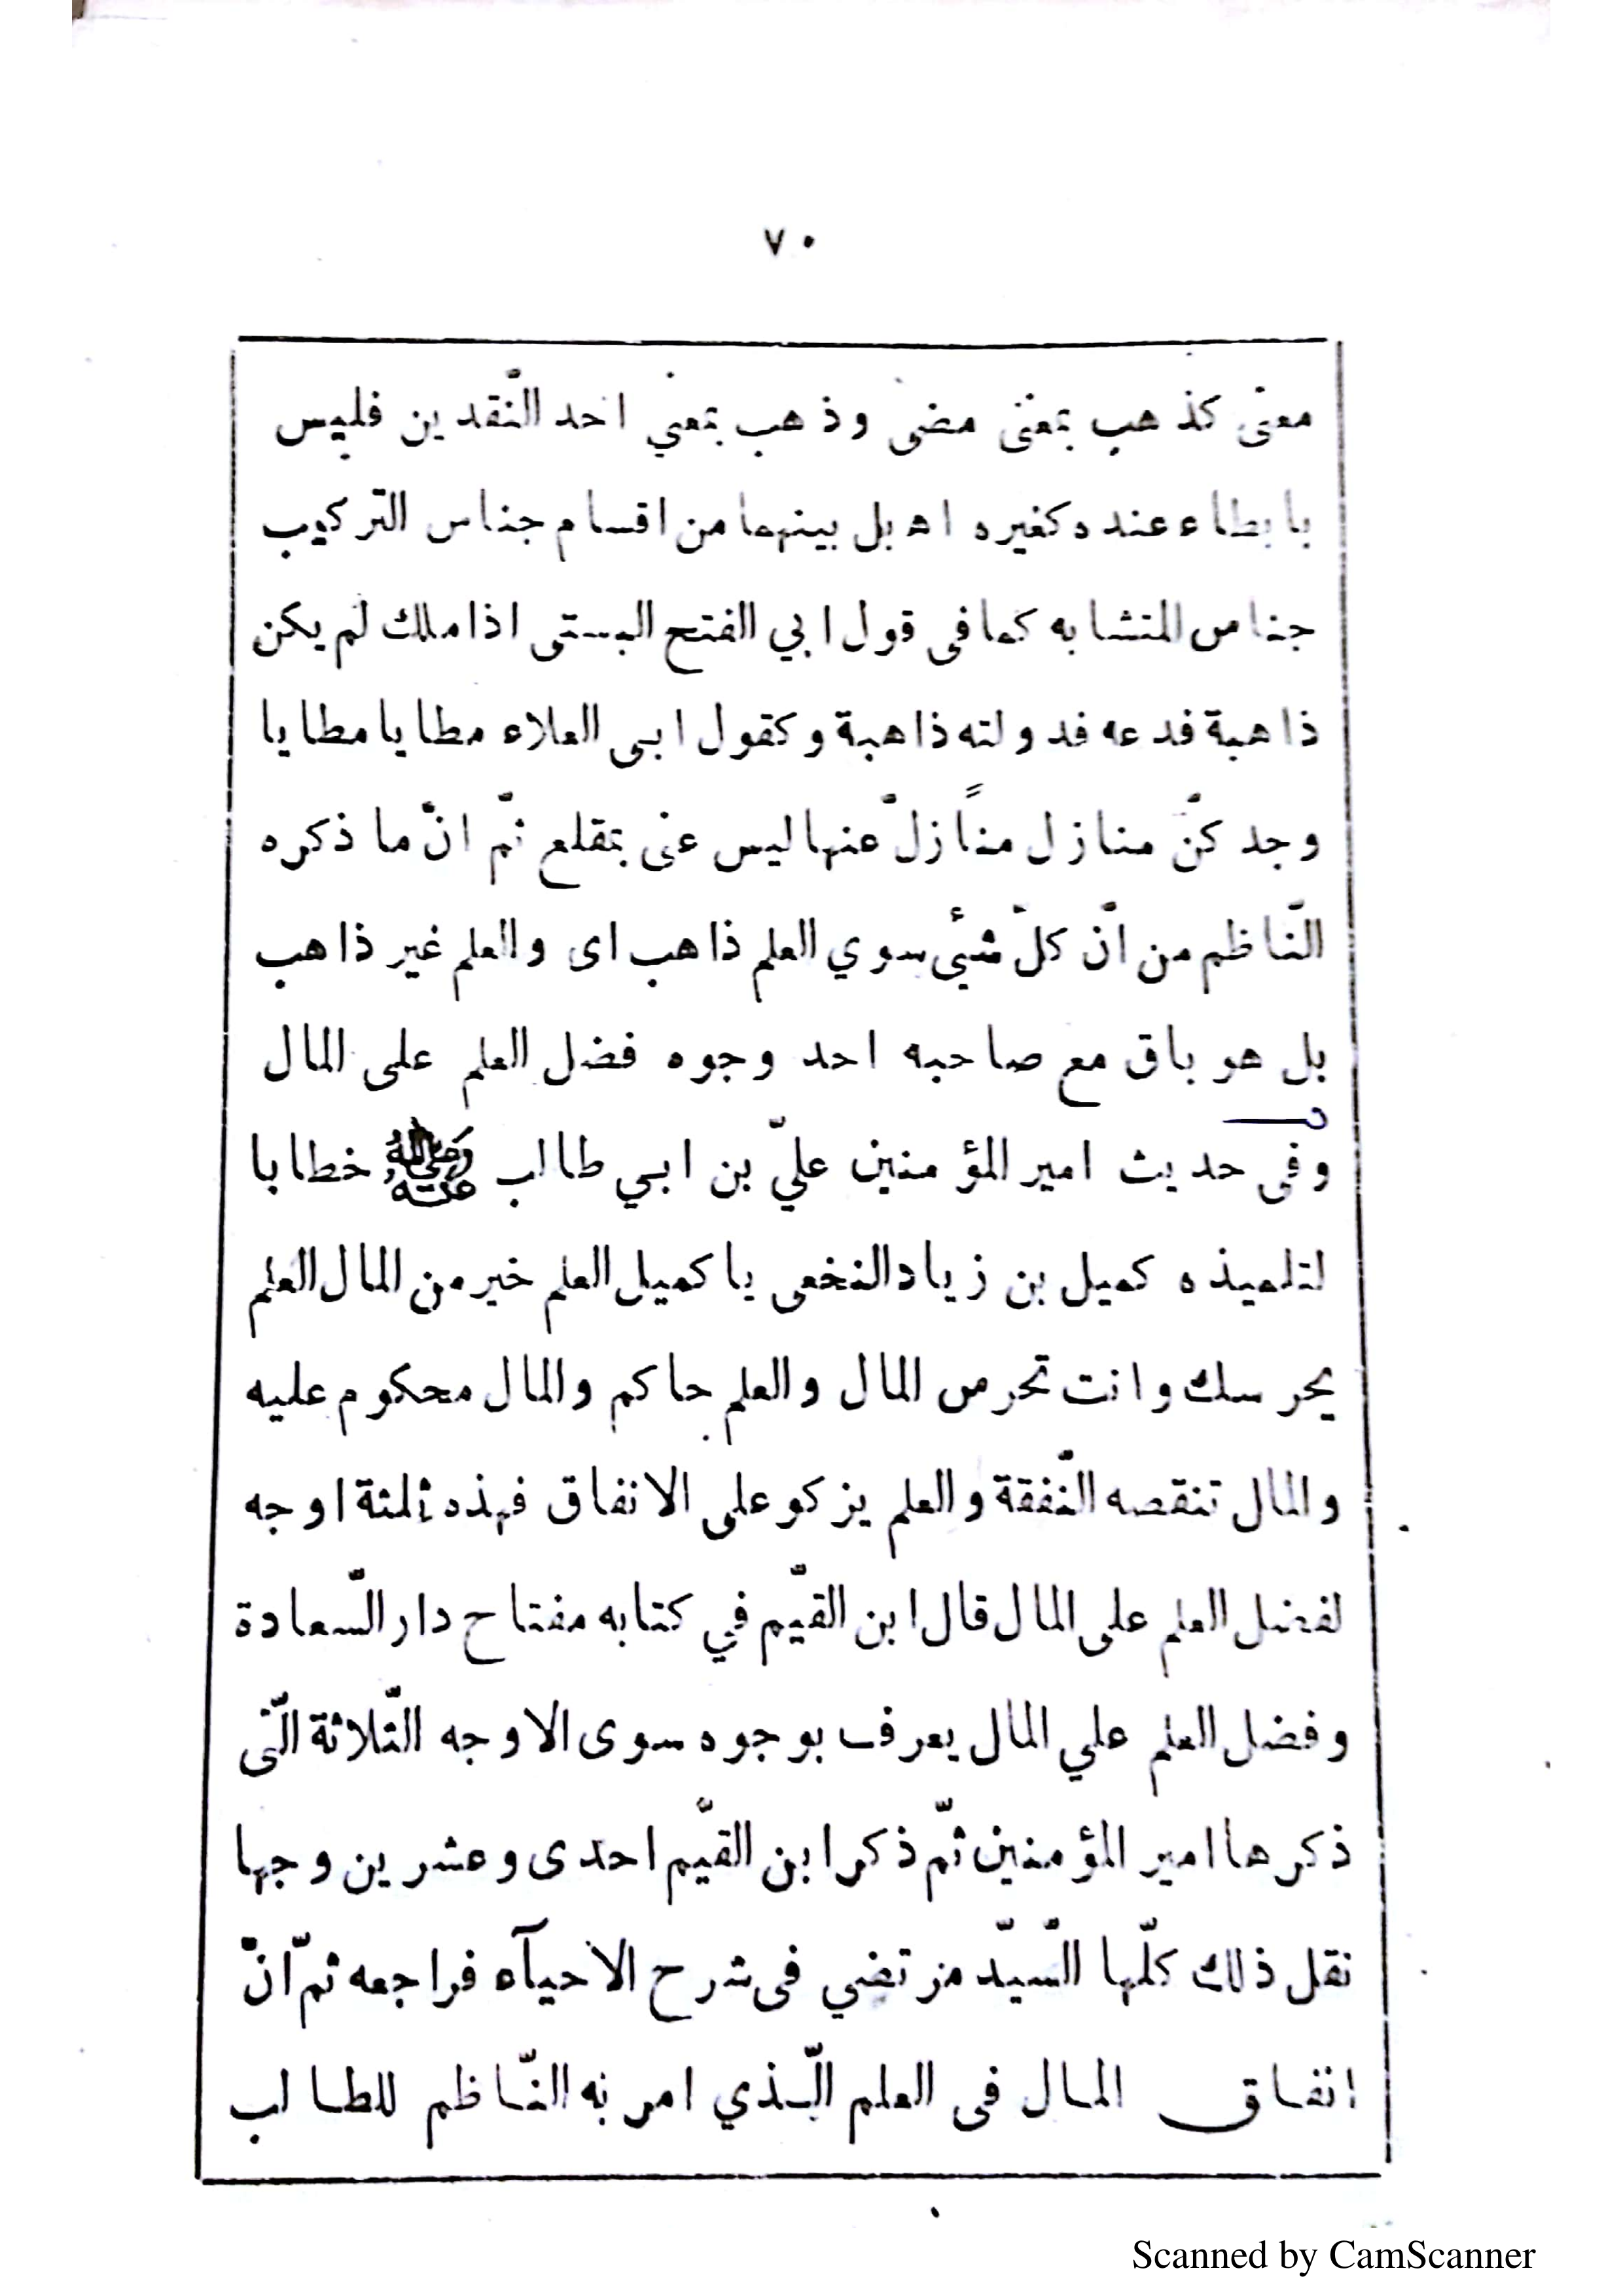 ٧٠
معنى كذهب بمعنى مضى وذهب بمعني احد النّقدين فليس
بابطاء عنده كغيره اه بل بينهما من اقسام جناس التركيب
جناس المتشابه كما فى قول ابي الفتح البستى اذا ملك لم يكن
ذاهبة فدعه فدولته ذاهبة وكقول ابى العلاء مطايا مطايا
وجدكنّ منازل مناًزلّ عنها ليس عنى بمقلع ثمّ انّ ما ذكره
النّاظم من انّ كلّ شيْئ سوي العلم ذاهب اى والعلم غير ذاهب
بل هو باق مع صاحبه احد وجوه فضل العلم على المال
وفى حديث امير المؤمنين عليّ بن ابي طالب رضي الله عنه خطابا
لتلميذه كميل بن زياد النخعى يا كميل العلم خير من المال العلم
يحرسك وانت تحرس المال والعلم حاكم والمال محكوم عليه
والمال تنقصه النّفقة والعلم يزكو على الانفاق فهذه ثلثة اوجه
لفضل العلم على المال قال ابن القيّم في كتابه مفتاح دار السّعادة
وفضل العلم علي المال يعرف بوجوه سوى الاوجه الثّلاثة الّتى
ذكرها امير المؤمنين ثمّ ذكر ابن القيّم احدى وعشرين وجها
نقل ذلك كلّها السّيّد مرتضي فى شرح الاحيآء فراجعه ثمّ انّ
انفاق المال فى العلم الّذي امر به النّاظم للطالب
Scanned by CamScanner